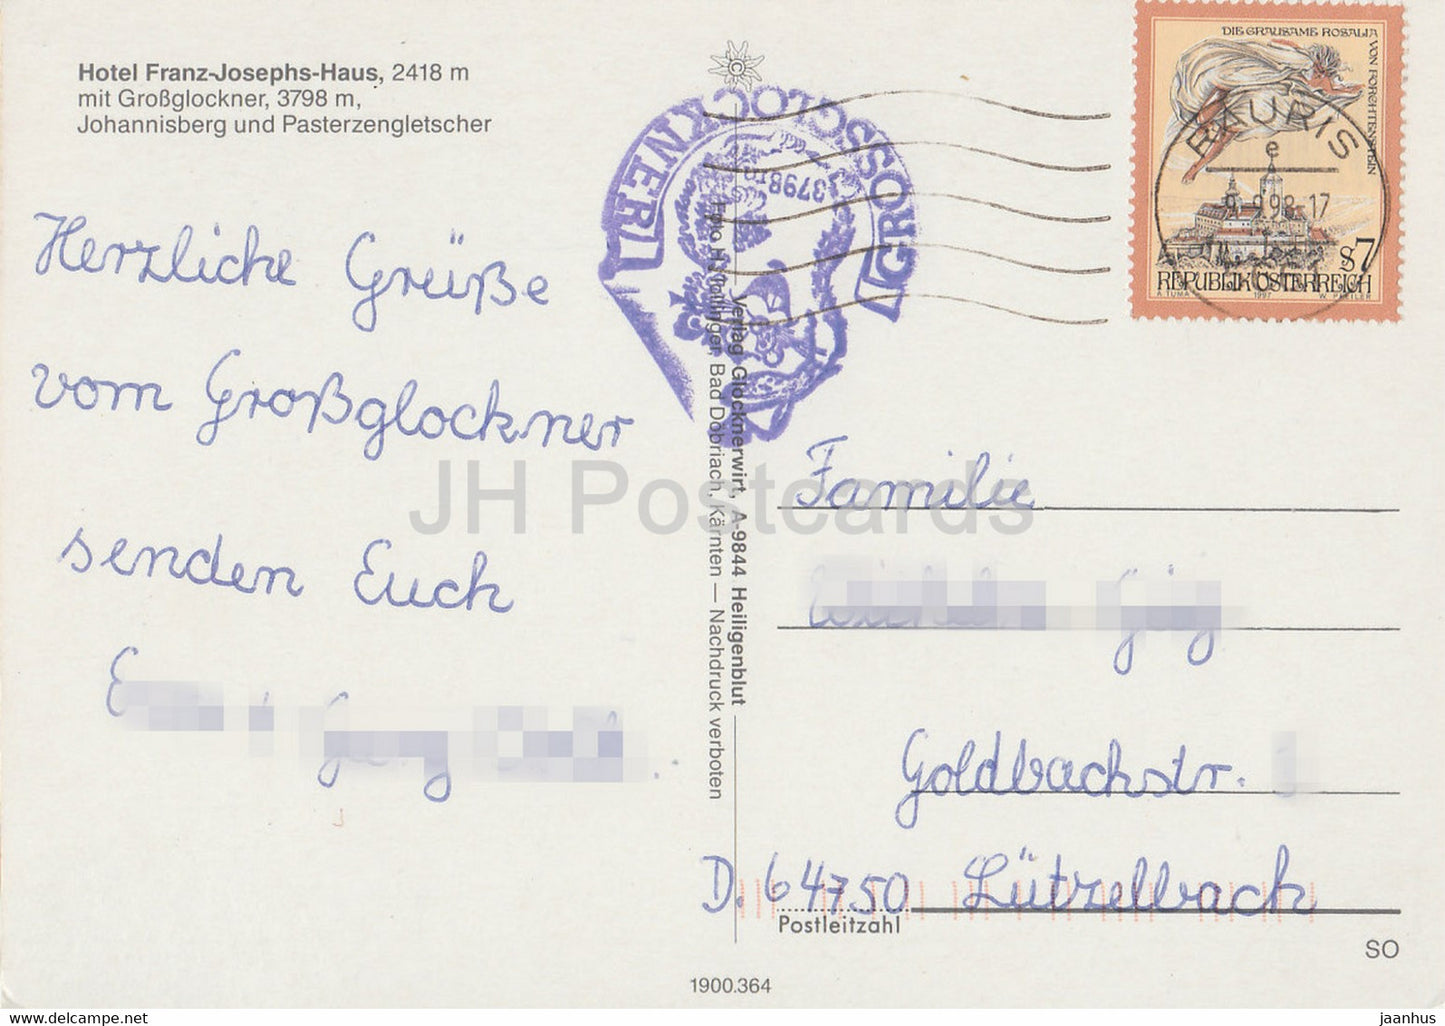 Hotel Franz-Josephs-Haus, 2418 m
mit Großglockner, 3798 m,
Johannisberg und Pasterzengletscher
Herzliche Grüße
vom Großglockner
senden Euch
GROSSGLOCKNER
3798 m
Verlag Glocknerwirt, A-9844 Heiligenblut
Bad Döbriach, Kärnten — Nachdruck verboten
DIE GRAUSAME ROSALIA
VON FORCHTENSTEIN
RAURIS
e
98-17
S7
REPUBLIK ÖSTERREICH
A. TUMA 1997 W. PFEILER
Familie
Goldbachstr.
D. 64750 Lützelbach
Postleitzahl
SO
1900.364
JH Postcards
delcampe.net
jaanhus